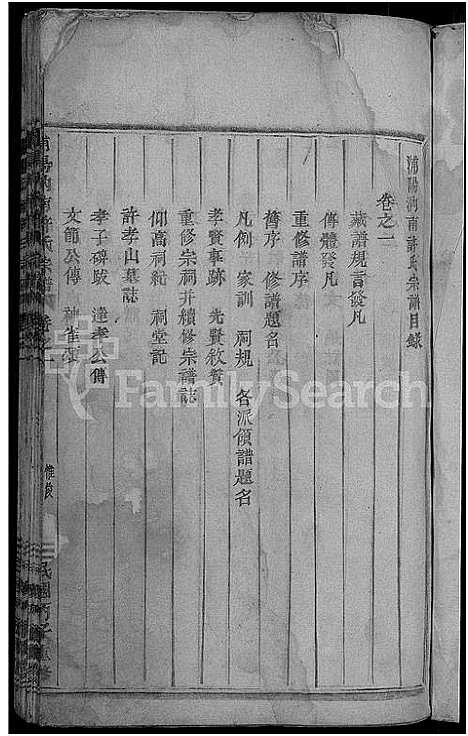 浦陽沔南許氏宗譜目錄
卷之一
藏譜規言發凡
傳體發凡
重修譜序
舊序 修譜題名
凡例 家訓 祠規 各派領譜題名
孝賢事跡 先賢敘贊
重修宗祠并續修宗譜誌
仰高祠紀 祠堂記
許孝山墓誌
孝子碑跋 達孝公傳
文節公傳 神雀頌
許氏宗譜 卷之一
惟俊
民國丙子
FamilySearch